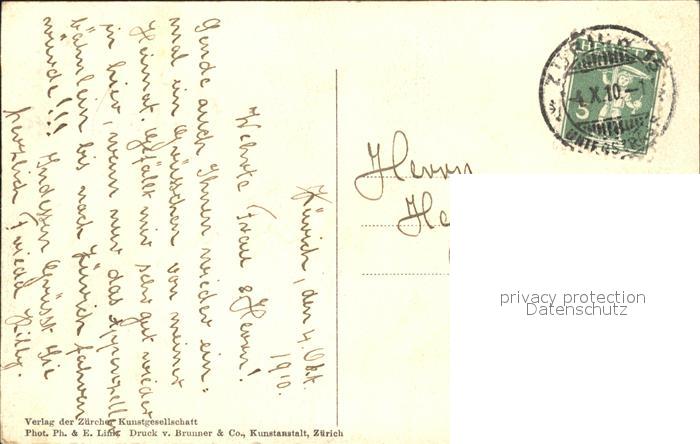 Zürich, den 4. Okt.
1910.
Werte Frau & Herrn!
Sende auch Ihnen wieder ein-
mal ein Grüsschen von meiner
Heimat. Gefällt mir sehr gut wieder
in hier, wenn nur das Appenzeller
bähnlein bis nach Zürich fahren
würde!!! Indessen Grüsst Sie
herzlich Frieda
Herrn
He
ZÜRICH
4.X.10.-1
5
privacy protection
Datenschutz
Verlag der Zürcher Kunstgesellschaft
Phot. Ph. & E. Link Druck v. Brunner & Co., Kunstanstalt, Zürich